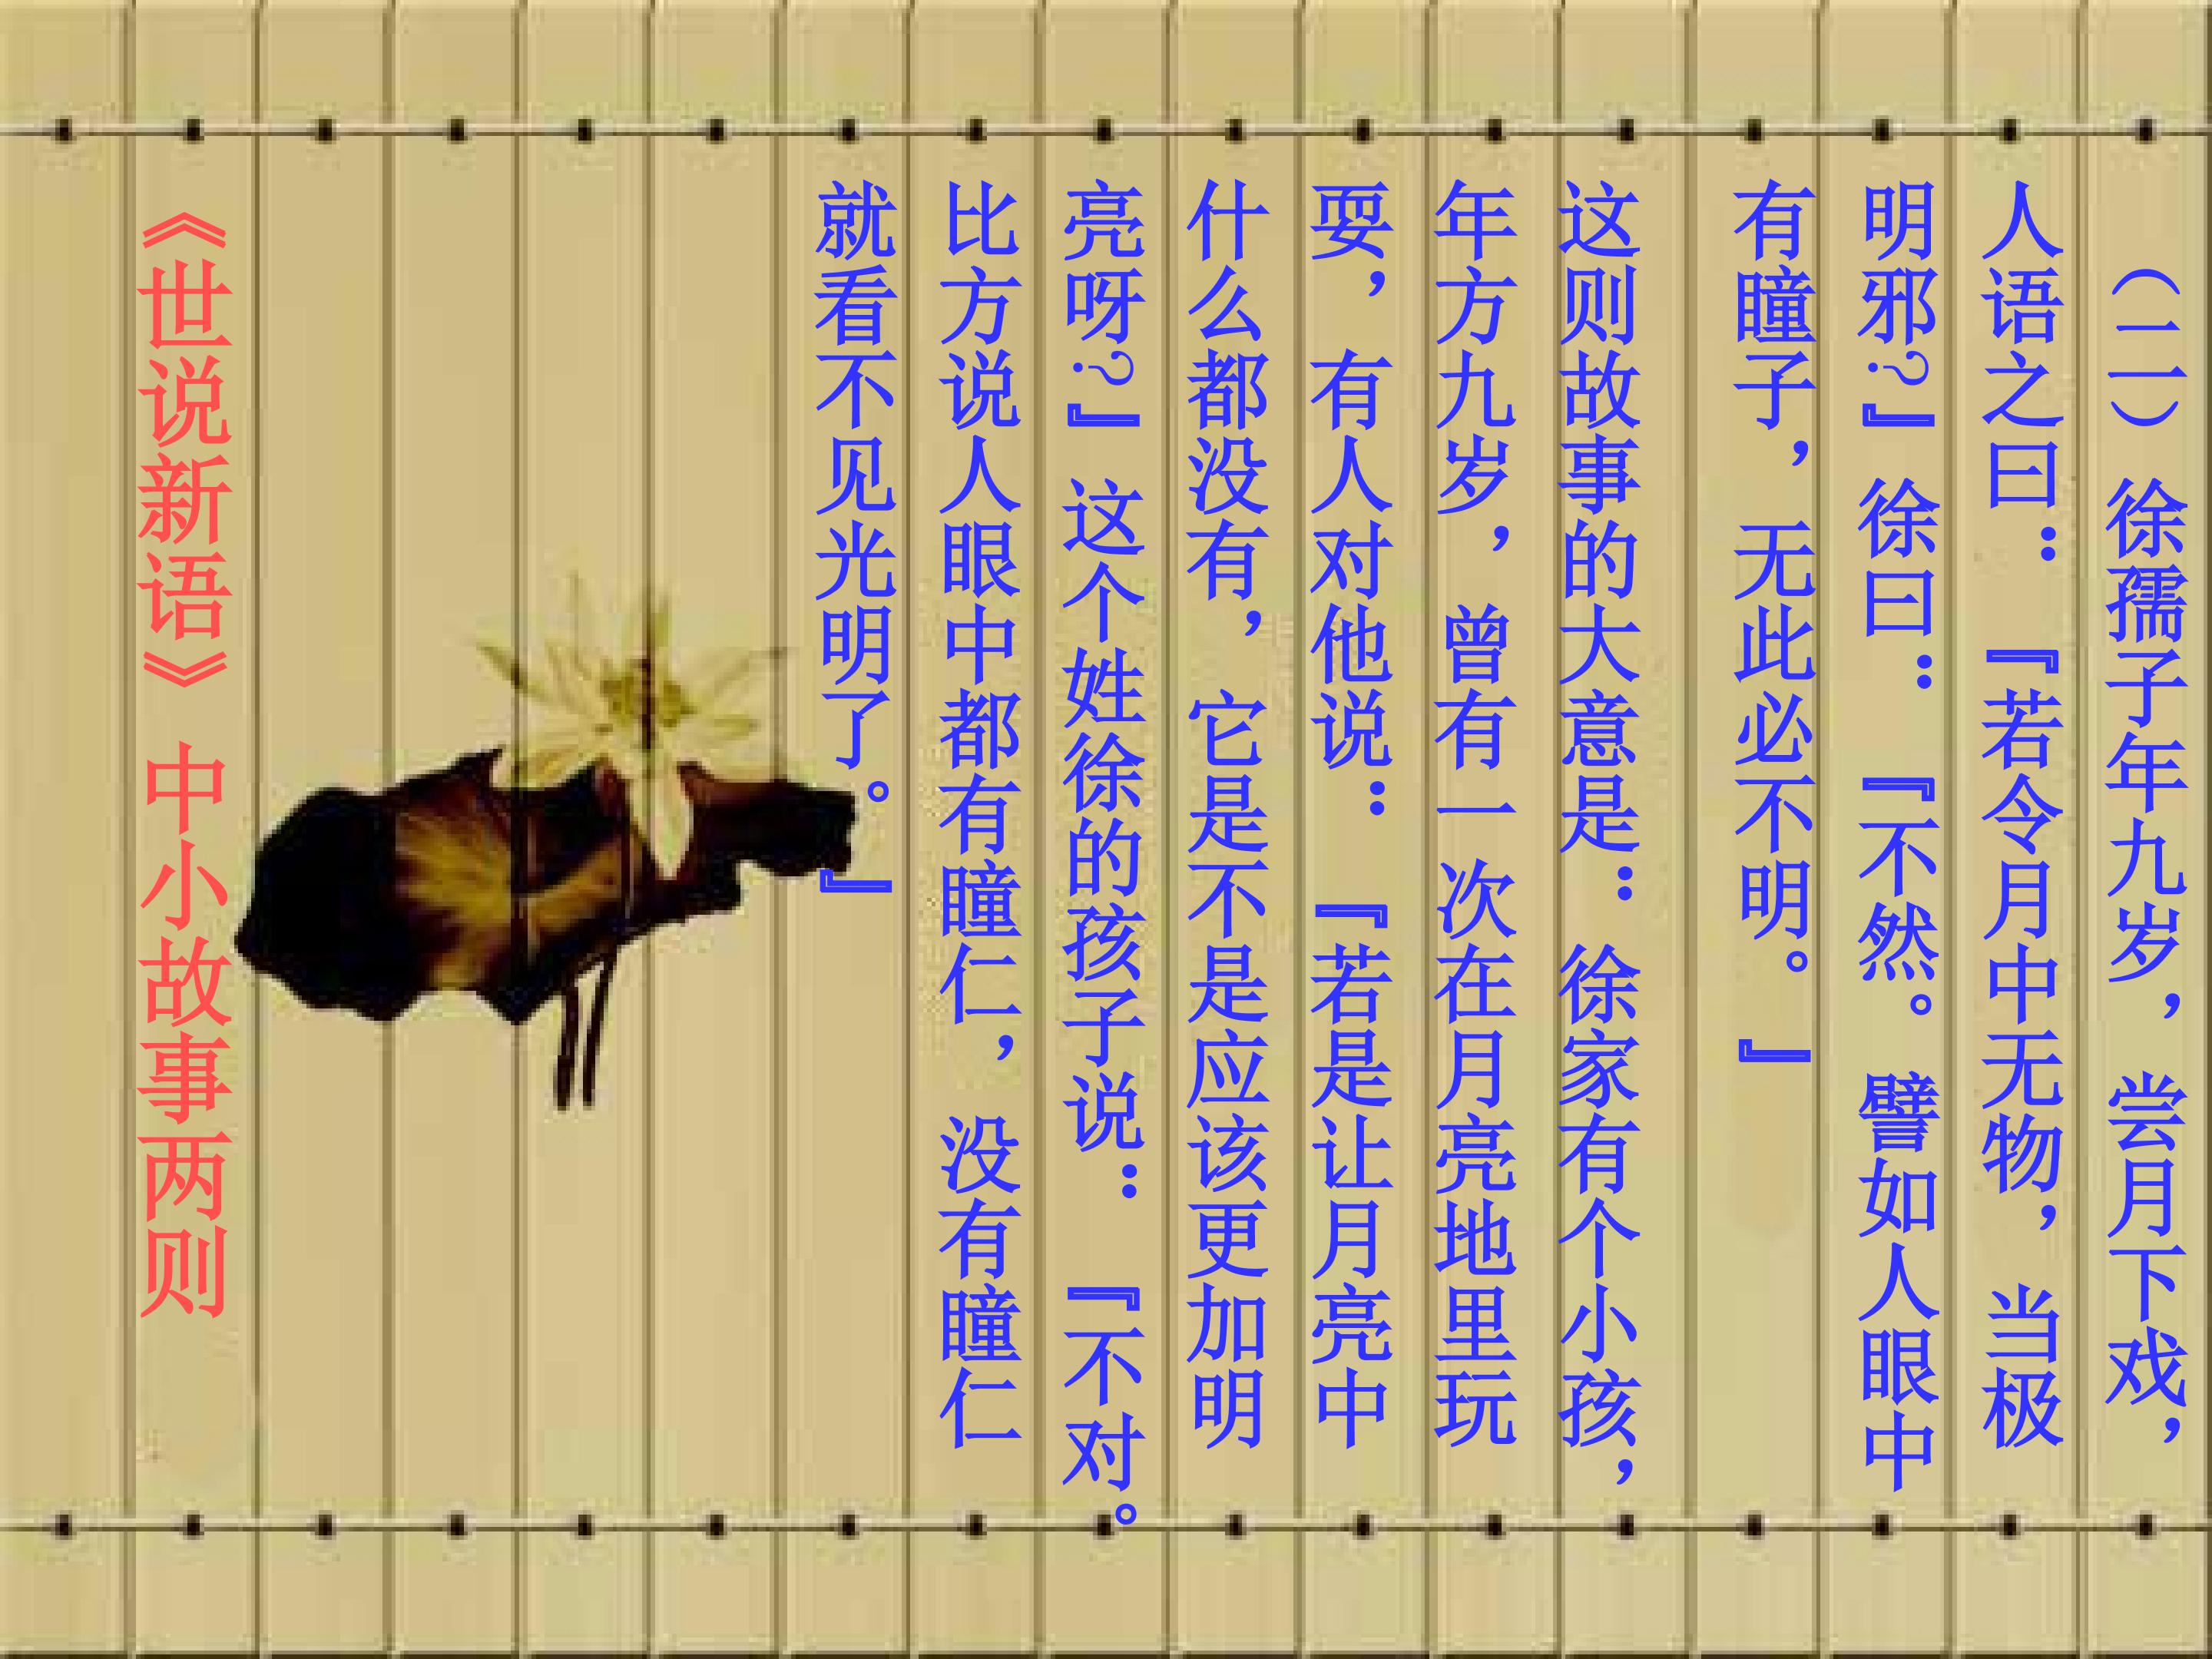 （二）徐孺子年九岁，尝月下戏，
人语之曰：『若令月中无物，当极
明邪?』徐曰：『不然。譬如人眼中
有瞳子，无此必不明。』
这则故事的大意是：徐家有个小孩，
年方九岁，曾有一次在月亮地里玩
耍，有人对他说：『若是让月亮中
什么都没有，它是不是应该更加明
亮呀?』这个姓徐的孩子说：『不对。
比方说人眼中都有瞳仁，没有瞳仁
就看不见光明了。』
《世说新语》中小故事两则